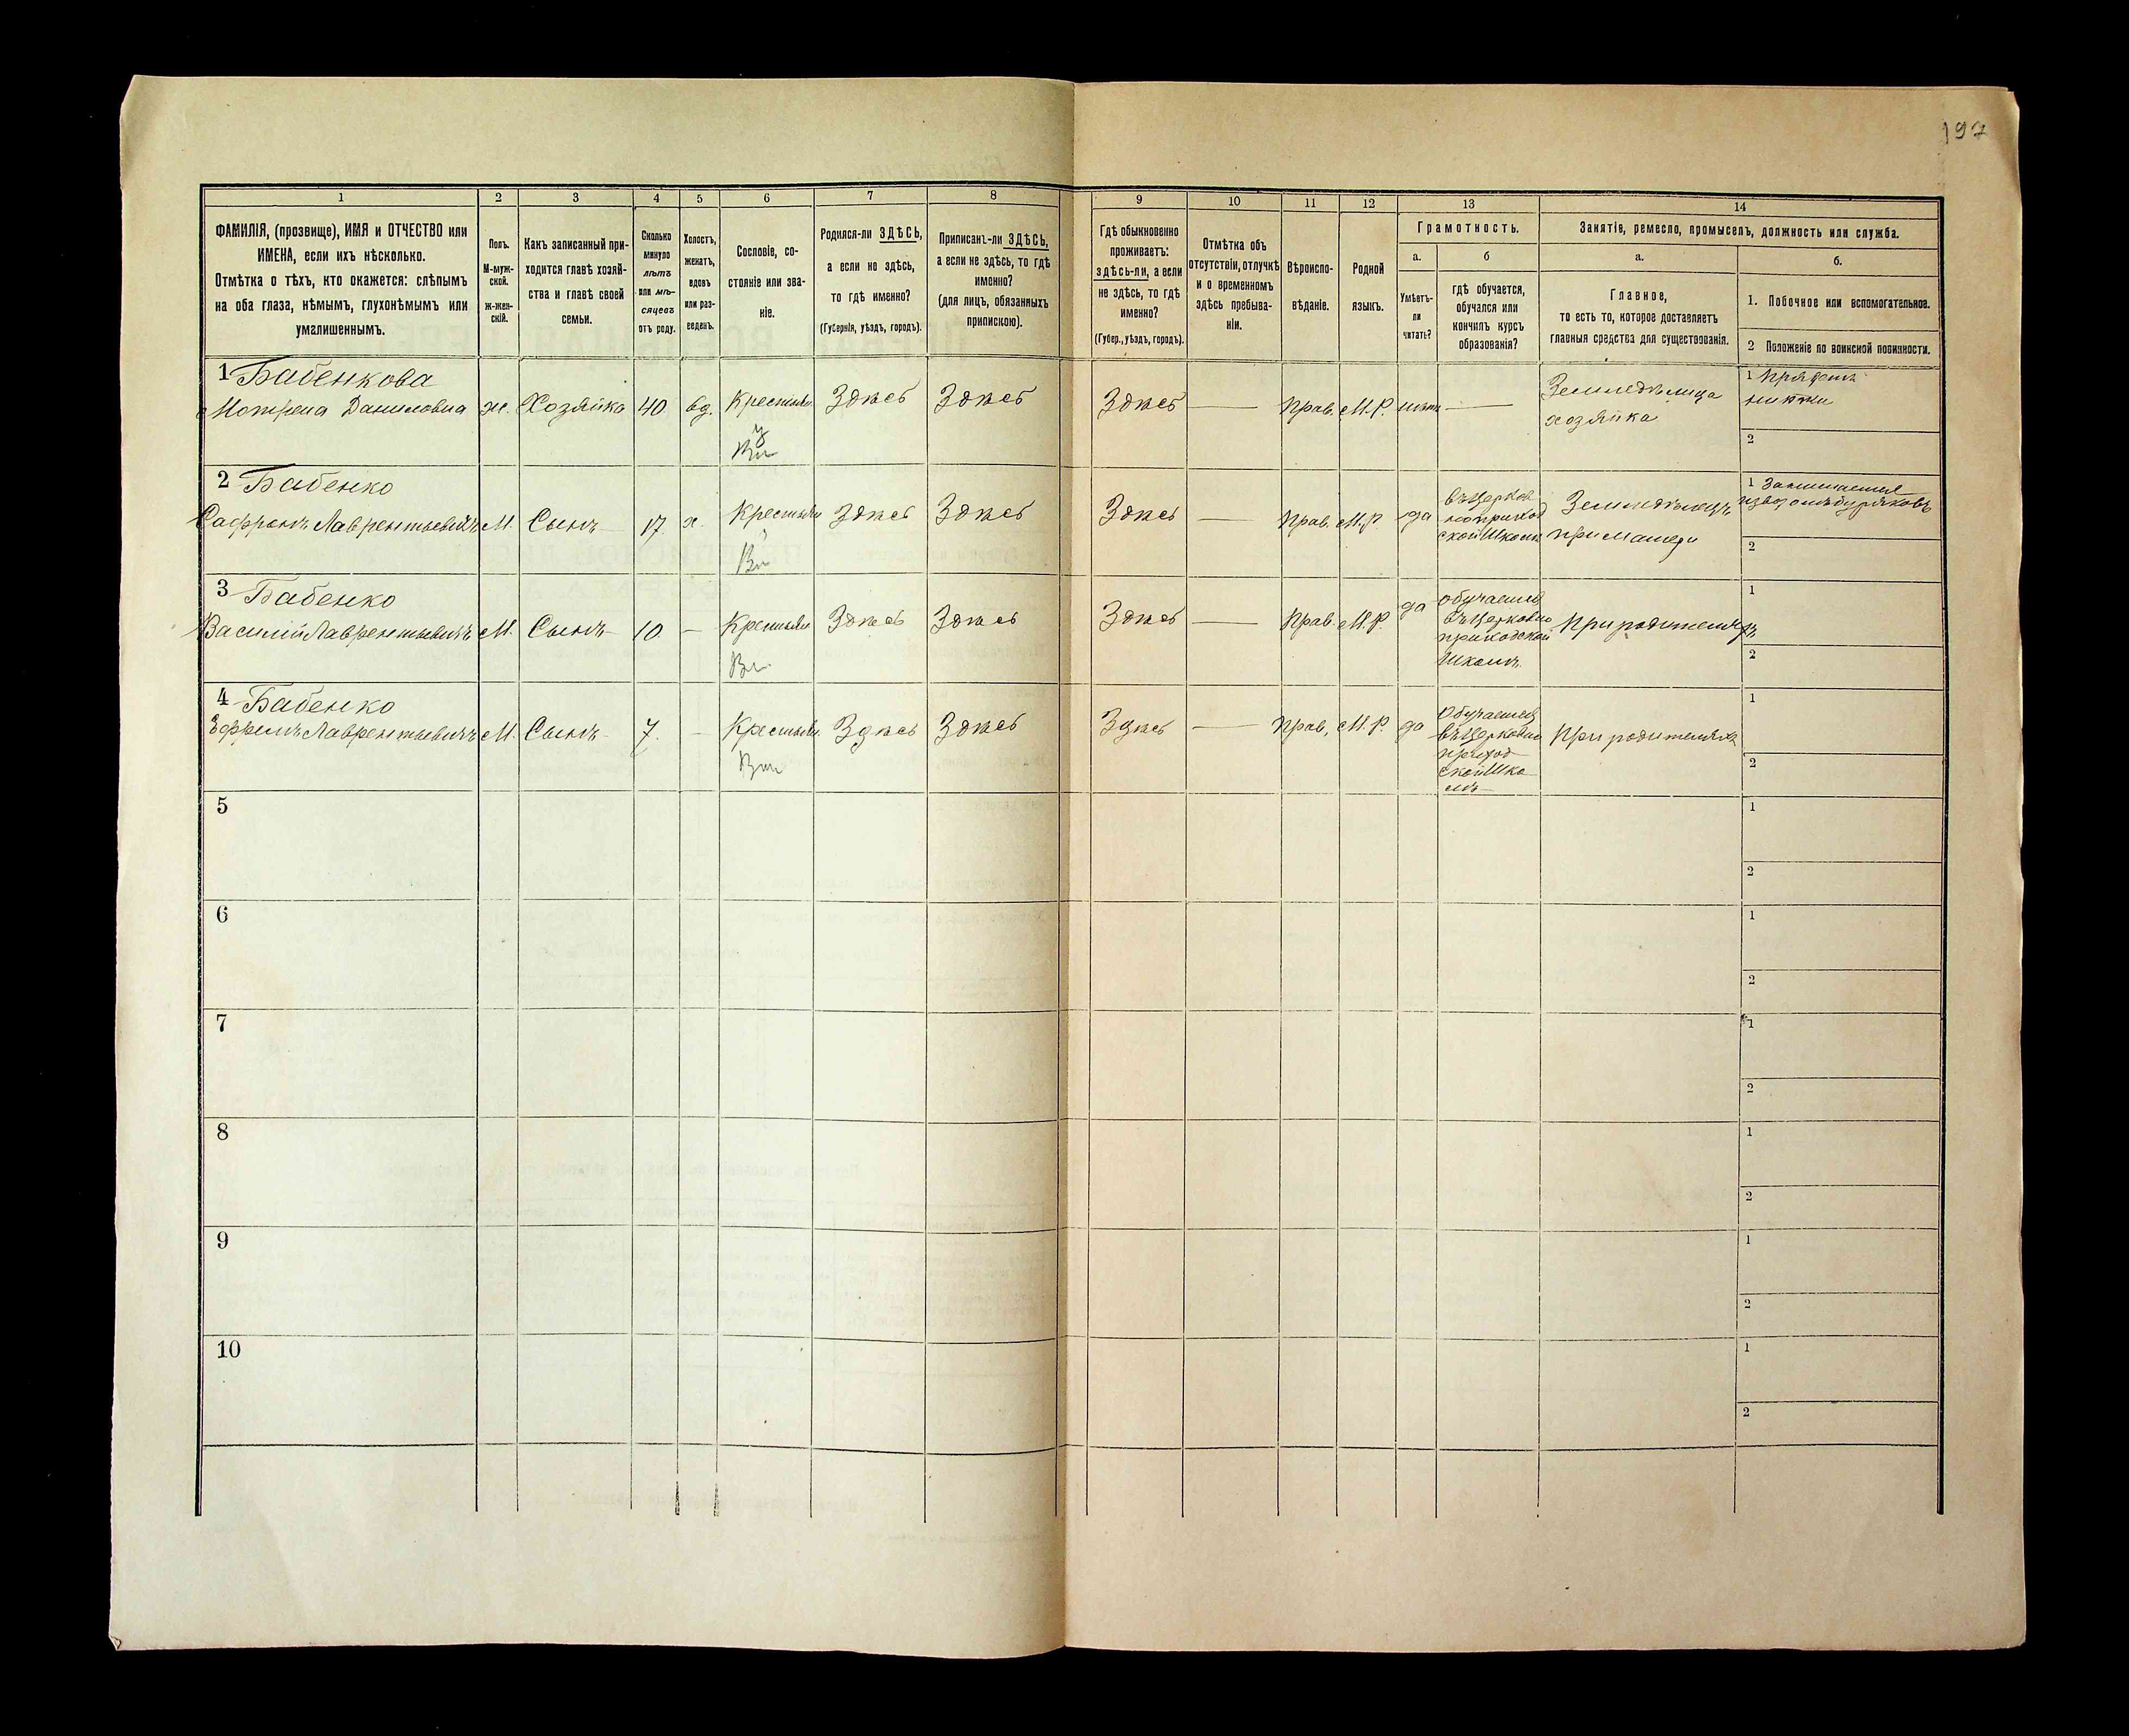 197
1
2
3
4
5
6
7
8
9
10
11
12
13
14
ФАМИЛІЯ, (прозвище), ИМЯ и ОТЧЕСТВО или
ИМЕНА, если ихъ нѣсколько.
Отмѣтка о тѣхъ, кто окажется: слѣпымъ
на оба глаза, нѣмымъ, глухонѣмымъ или
умалишеннымъ.
Полъ.
М-муж-
ской.
ж-жен-
скій.
Какъ записанный при-
ходится главѣ хозяй-
ства и главѣ своей
семьи.
Сколько
минуло
лѣтъ
или мѣ-
сяцевъ
отъ роду.
Холостъ,
женатъ,
вдовъ
или раз-
веденъ.
Сословіе, со-
стояніе или зва-
ніе.
Родился-ли ЗДѢСЬ,
а если не здѣсь,
то гдѣ именно?
(Губернія, уѣздъ, городъ).
Приписанъ-ли ЗДѢСЬ,
а если не здѣсь, то гдѣ
именно?
(для лицъ, обязанныхъ
припискою).
Гдѣ обыкновенно
проживаетъ:
здѣсь-ли, а если
не здѣсь, то гдѣ
именно?
(Губер., уѣздъ, городъ).
Отмѣтка объ
отсутствіи, отлучкѣ
и о временномъ
здѣсь пребыва-
ніи.
Вѣроиспо-
вѣданіе.
Родной
языкъ.
Грамотность.
а.
Умѣетъ-
ли
читать?
б
гдѣ обучается,
обучался или
кончилъ курсъ
образованія?
Занятіе, ремесло, промыселъ, должность или служба.
а.
Главное,
то есть то, которое доставляетъ
главныя средства для существованія.
б.
1. Побочное или вспомогательное.
2 Положеніе по воинской повинности.
1 Бабенкова
Мотрена Даниловна
ж.
Хозяйка
40
вд.
Крестьян.
Здѣсь
Здѣсь
Здѣсь
—
Прав.
М.Р.
нѣтъ
—
Земледѣлица
хозяйка
1 Прядетъ
нитки
2
2 Бабенко
Сафронъ Лаврентьевичъ
М.
Сынъ
17
х.
Крестьян
Здѣсь
Здѣсь
Здѣсь
—
Прав.
М.Р
да
въ Церков
ноприход
ской Школѣ
Земледѣлецъ
при матери
1 Занимается
извозомъ буряковъ
2
3 Бабенко
Василій Лаврентьевичъ
М.
Сынъ
10
—
Крестьян
Здѣсь
Здѣсь
Здѣсь
—
Прав.
М.Р.
да
Обучается
въ Церковно
приходской
Школѣ.
При родителяхъ
1
2
4 Бабенко
Ефремъ Лаврентьевичъ
М.
Сынъ
7.
—
Крестьян.
Здѣсь
Здѣсь
Здѣсь
—
Прав.
М.Р.
да
Обучается
въ Церковно
приход
ской Шко
лѣ
При родителяхъ
1
2
5
1
2
6
1
2
7
1
2
8
1
2
9
1
2
10
1
2